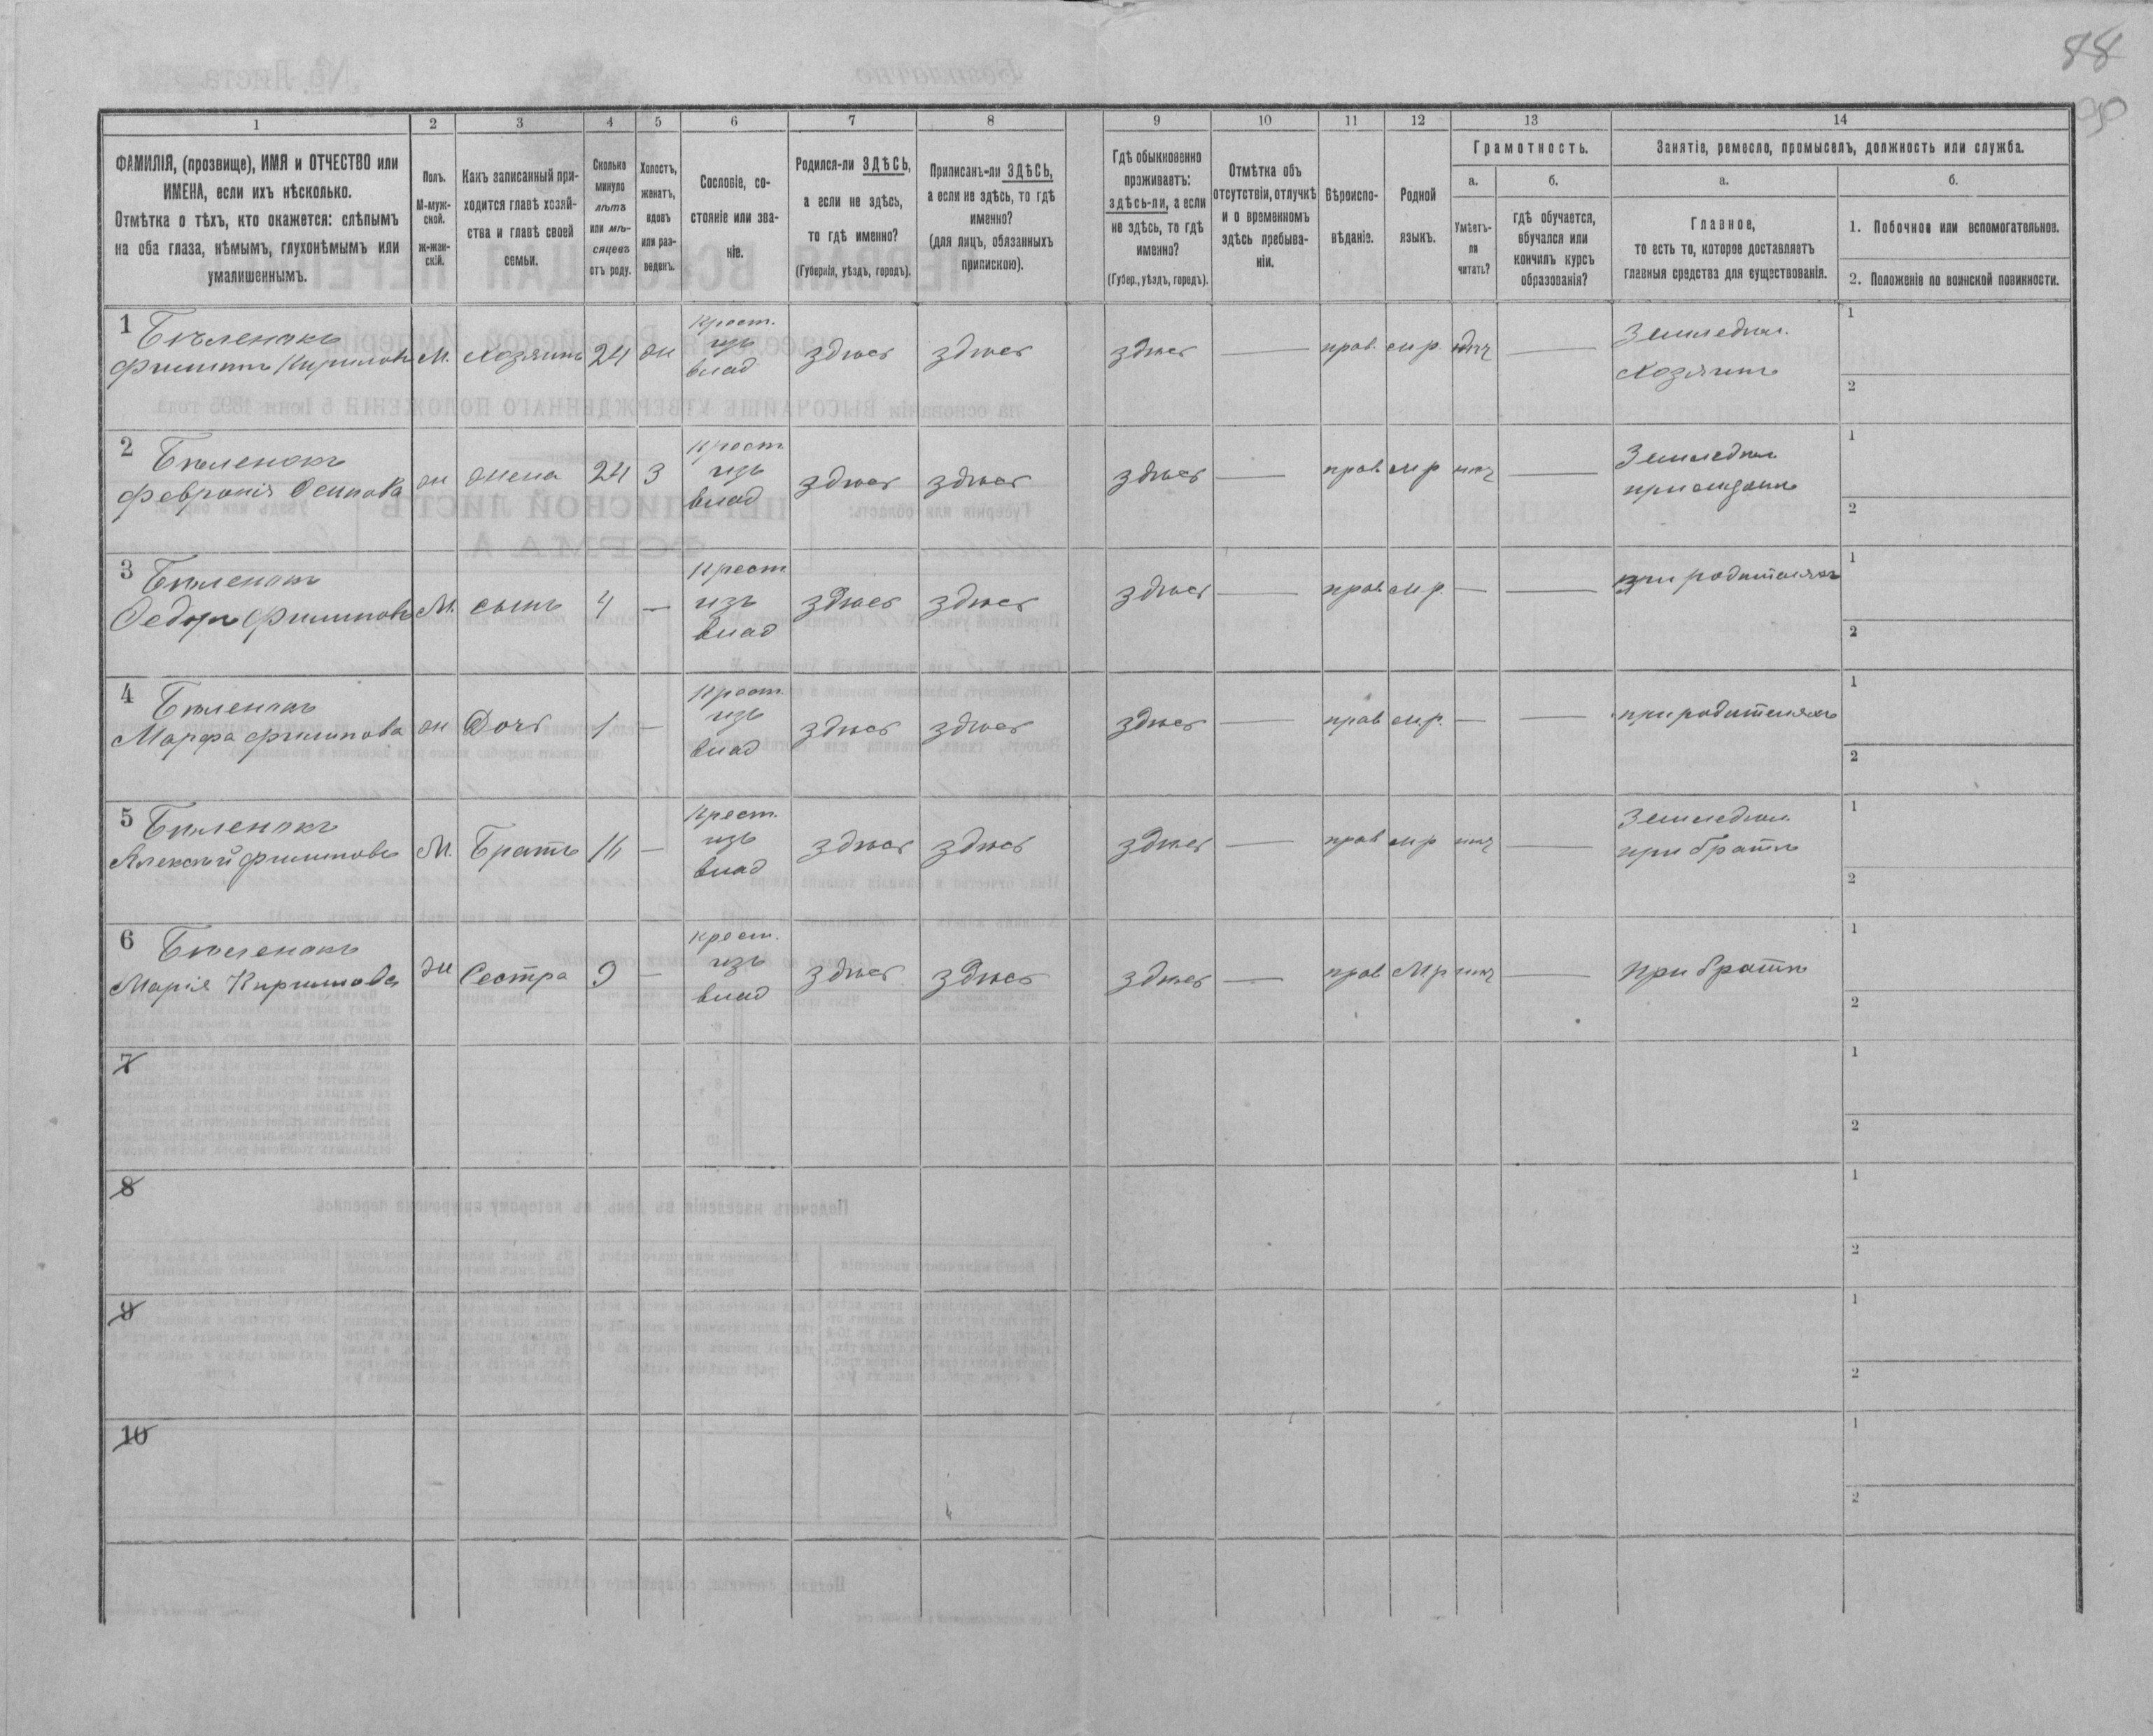 88
90
1
2
3
4
5
6
7
8
9
10
11
12
13
14
ФАМИЛІЯ, (прозвище), ИМЯ и ОТЧЕСТВО или
ИМЕНА, если ихъ нѣсколько.
Отмѣтка о тѣхъ, кто окажется: слѣпымъ
на оба глаза, нѣмымъ, глухонѣмымъ или
умалишеннымъ.
Полъ.
М-муж-
ской.
ж-жен-
скій.
Какъ записанный при-
ходится главѣ хозяй-
ства и главѣ своей
семьи.
Сколько
минуло
лѣтъ
или мѣ-
сяцевъ
отъ роду.
Холостъ,
женатъ,
вдовъ
или раз-
веденъ.
Сословіе, со-
стояніе или зва-
ніе.
Родился-ли ЗДѢСЬ,
а если не здѣсь,
то гдѣ именно?
(Губернія, уѣздъ, городъ).
Приписанъ-ли ЗДѢСЬ,
а если не здѣсь, то гдѣ
именно?
(для лицъ, обязанныхъ
припискою).
Гдѣ обыкновенно
проживаетъ:
здѣсь-ли, а если
не здѣсь, то гдѣ
именно?
(Губер., уѣздъ, городъ).
Отмѣтка объ
отсутствіи, отлучкѣ
и о временномъ
здѣсь пребыва-
ніи.
Вѣроиспо-
вѣданіе.
Родной
языкъ.
Грамотность.
а.
Умѣетъ-
ли
читать?
б.
гдѣ обучается,
обучался или
кончилъ курсъ
образованія?
Занятіе, ремесло, промыселъ, должность или служба.
а.
Главное,
то есть то, которое доставляетъ
главныя средства для существованія.
б.
1. Побочное или вспомогательное.
2. Положеніе по воинской повинности.
1 Бѣленокъ
Филиппъ Кириловъ М. Хозяинъ 24 ж Крест. изъ влад. здѣсь здѣсь здѣсь — прав. м р. — Земледѣл. Хозяинъ 1 2
2 Бѣленокъ
Февронія Осипова ж жена 24 З Крест изъ влад здѣсь здѣсь здѣсь — прав м р нѣт — Земледѣл при мужѣ 1 2
3 Бѣленокъ
Федоръ Филиповъ М. сынъ 4 — Крест изъ влад здѣсь здѣсь здѣсь — прав м р. — — при родителяхъ 1 2
4 Бѣленокъ
Марфа Филипова ж Дочь 1 — Крест изъ влад здѣсь здѣсь здѣсь — прав м р. — — при родителяхъ 1 2
5 Бѣленокъ
Алексѣй Филиповъ М. Братъ 16 — Крест. изъ влад здѣсь здѣсь здѣсь — прав м р нѣт — Земледѣл. при братѣ 1 2
6 Бѣленокъ
Марія Кирилова ж Сестра 9 — крест. изъ влад здѣсь здѣсь здѣсь — прав М р нѣт — при братѣ 1 2
7 1 2
8 1 2
9 1 2
10 1 2